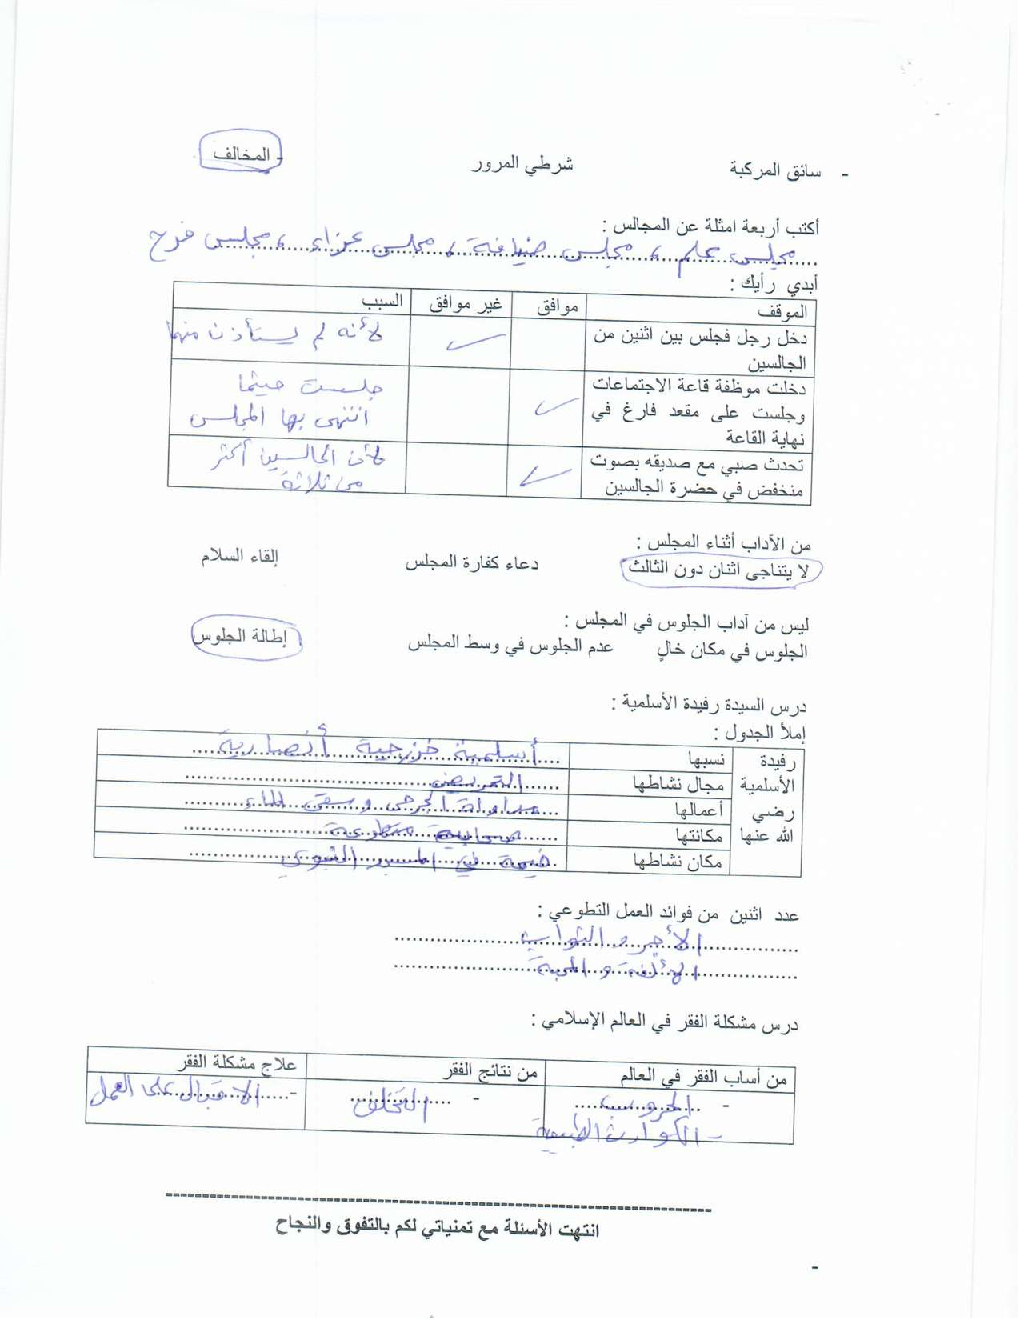 - سائق المركبة شرطي المرور - المخالف
أكتب أربعة امثلة عن المجالس :
مجلس علم ، مجلس ضيافة ، مجلس عزاء ، مجلس فرح
أبدي رأيك :
الموقف موافق غير موافق السبب
دخل رجل فجلس بين اثنين من الجالسين ✓ لأنه لم يستأذن منهما
دخلت موظفة قاعة الاجتماعات ✓ جلست حيثما
وجلست على مقعد فارغ في انتهى بها المجلس
نهاية القاعة
تحدث صبي مع صديقه بصوت ✓ لأن الجالسين أكثر
منخفض في حضرة الجالسين من ثلاثة
من الآداب أثناء المجلس :
لا يتناجى اثنان دون الثالث دعاء كفارة المجلس إلقاء السلام
ليس من آداب الجلوس في المجلس :
الجلوس في مكان خالٍ عدم الجلوس في وسط المجلس إطالة الجلوس
درس السيدة رفيدة الأسلمية :
إملأ الجدول :
رفيدة نسبها أسلمية خزرجية أنصارية
الأسلمية مجال نشاطها التمريض
رضي أعمالها مداواة الجرحى وسقي الماء
الله عنها مكانتها صحابية متطوعة
مكان نشاطها خيمة في المسجد النبوي
عدد اثنين من فوائد العمل التطوعي :
الأجر و الثواب
الألفة و المحبة
درس مشكلة الفقر في العالم الإسلامي :
من أساب الفقر في العالم من نتائج الفقر علاج مشكلة الفقر
- الحروب - التخلف - الاقبال على العمل
- الكوارث الطبيعية
انتهت الأسئلة مع تمنياتي لكم بالتفوق والنجاح
-